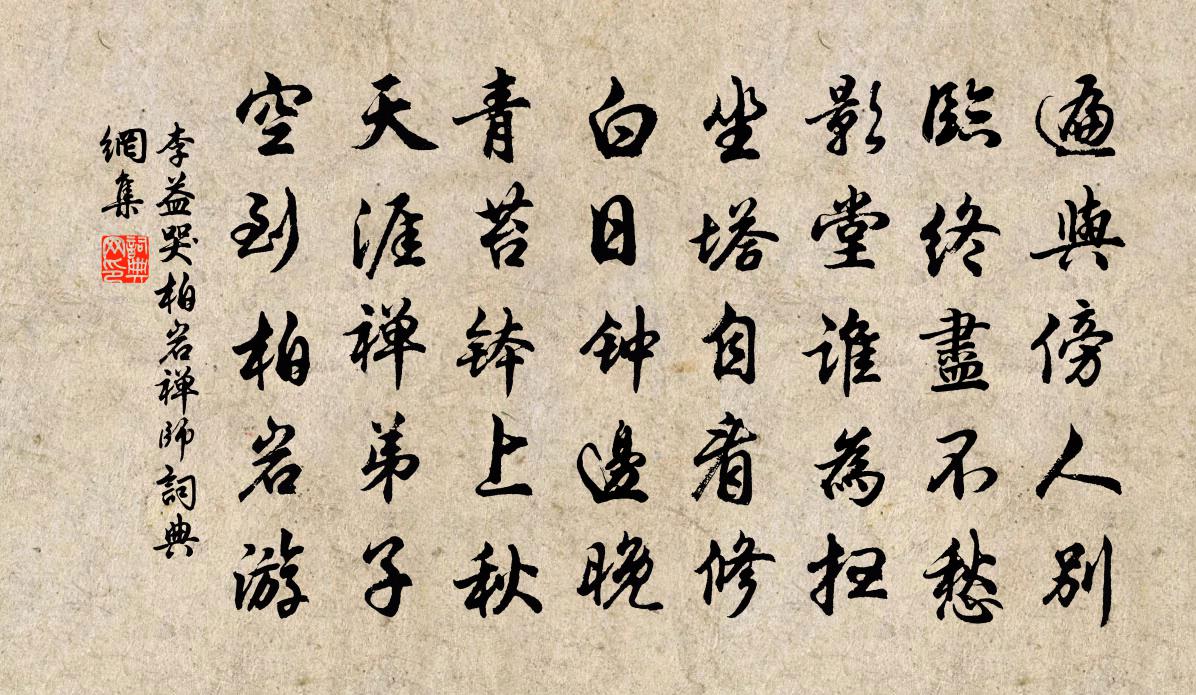 遍與傍人別
臨終盡不愁
影堂誰為掃
坐塔自看修
白日钟邊晚
青苔鉢上秋
天涯禅弟子
空到柏岩游
李益哭柏岩禅師詞典
網集
詞典
网印